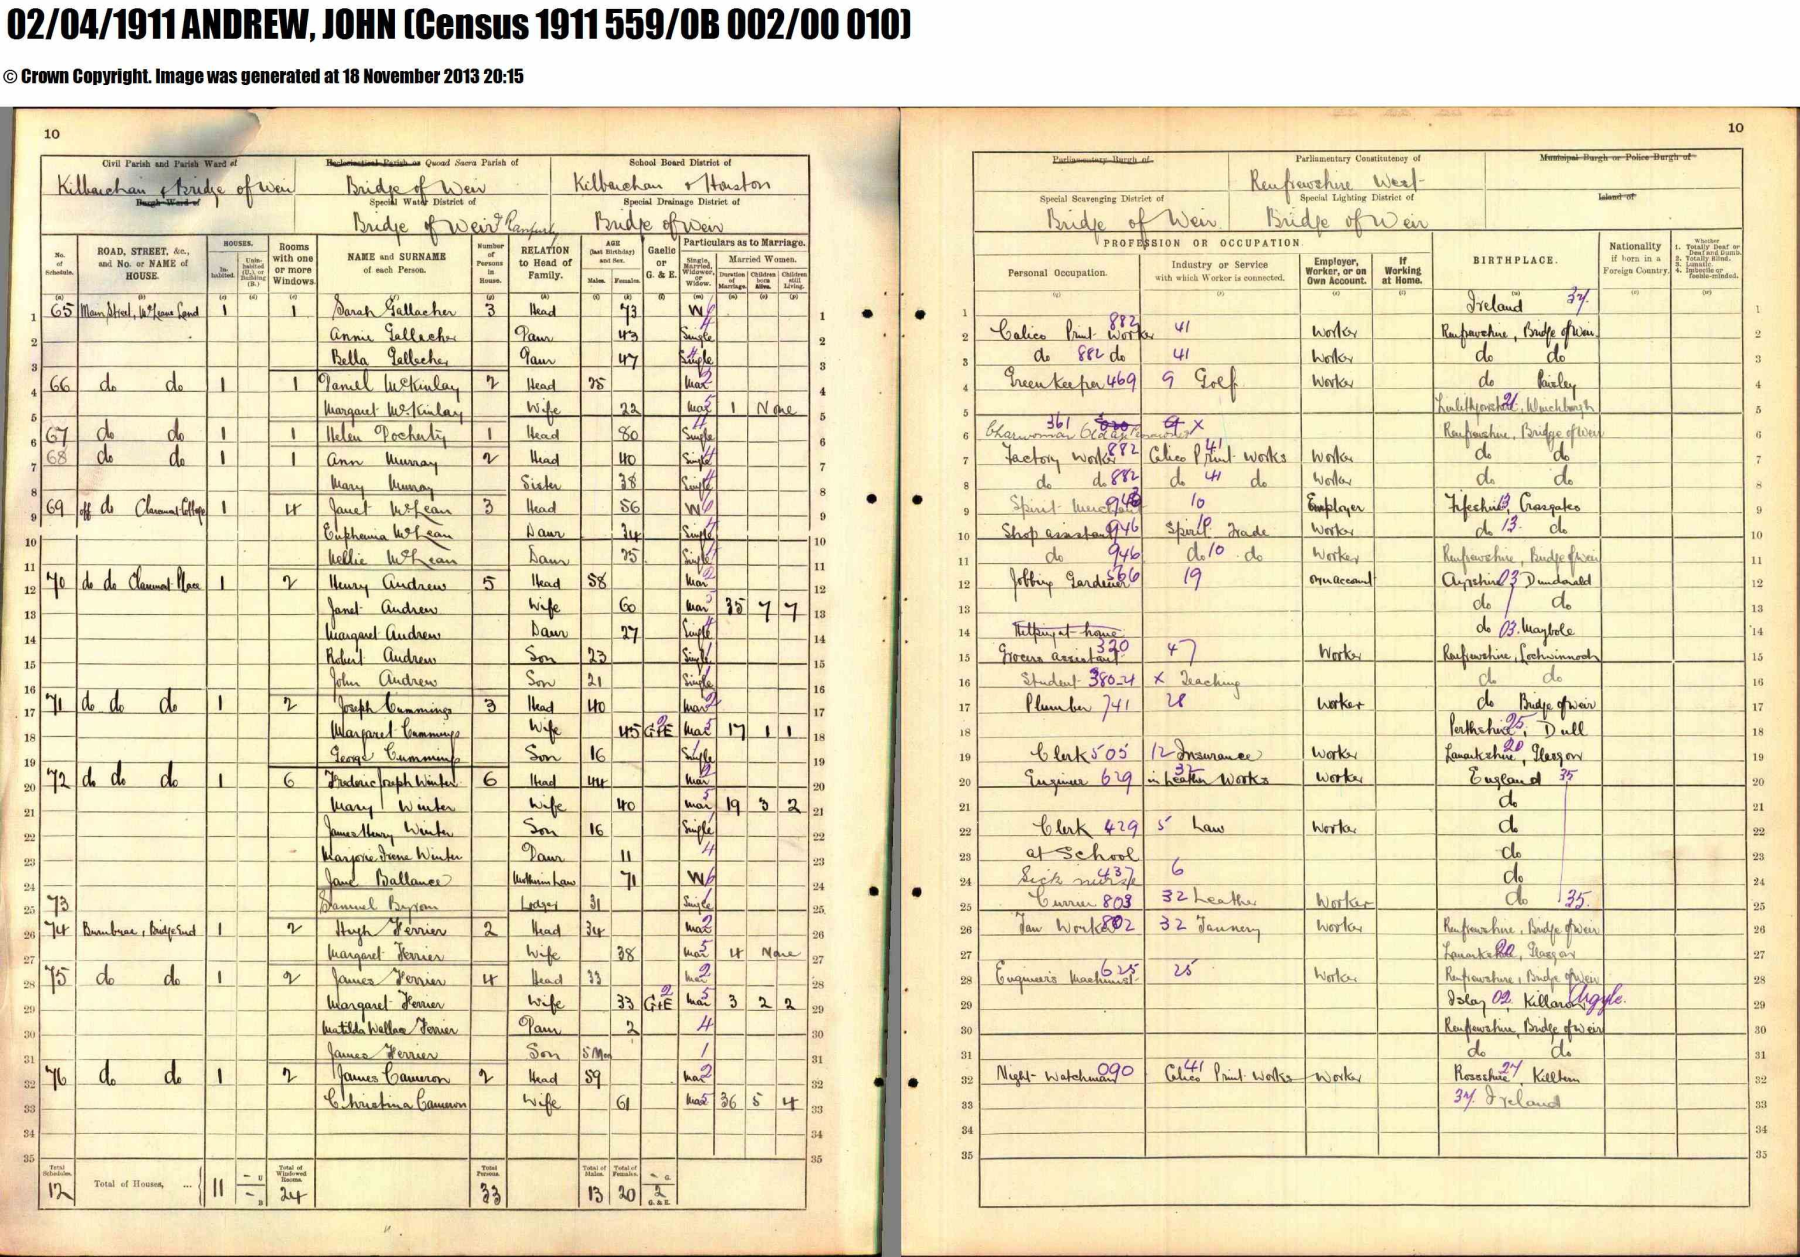 02/04/1911 ANDREW, JOHN (Census 1911 559/0B 002/00 010)
© Crown Copyright. Image was generated at 18 November 2013 20:15
10
Civil Parish and Parish Ward of Kilbarchan & Bridge of Weir
Burgh Ward of
Ecclesiastical Parish or Quoad Sacra Parish of Bridge of Weir
School Board District of Kilbarchan & Houston
Special Water District of Bridge of Weir & Ranfurly
Special Drainage District of Bridge of Weir
No. of Schedule. ROAD, STREET, &c., and No. or NAME of HOUSE. HOUSES. Inhabited. Rooms with one or more Windows. NAME and SURNAME of each Person. Number of Persons in House. RELATION to Head of Family. AGE (last Birthday) and Sex. Males. Females. Gaelic or G. & E. Particulars as to Marriage. Single, Married, Widower, or Widow. Married Women. Duration of Marriage. Children born Alive. Children still Living.
1 65 Main Street, McLeans Land 1 1 Sarah Gallacher 3 Head 73 W 6
2 Annie Gallacher Daur 43 Single 4
3 Bella Gallacher Daur 47 Single 4
4 66 do do 1 1 Daniel McKinlay 2 Head 25 Mar 2
5 Margaret McKinlay Wife 22 Mar 5 1 None
6 67 do do 1 1 Helen Docherty 1 Head 80 Single 4
7 68 do do 1 1 Ann Murray 2 Head 40 Single 4
8 Mary Murray Sister 38 Single 4
9 69 off do Claremont Cottage 1 4 Janet McLean 3 Head 56 W 6
10 Euphemia McLean Daur 34 Single 4
11 Nellie McLean Daur 25 Single 4
12 70 do do Claremont Place 1 2 Henry Andrew 5 Head 58 Mar 2
13 Janet Andrew Wife 60 Mar 5 35 7 7
14 Margaret Andrew Daur 27 Single 4
15 Robert Andrew Son 23 Single 1
16 John Andrew Son 21 Single 1
17 71 do do do 1 2 Joseph Cummings 3 Head 40 Mar 2
18 Margaret Cummings Wife 45 G&E 2 Mar 5 17 1 1
19 George Cummings Son 16 Single 1
20 72 do do do 1 6 Frederic Joseph Winter 6 Head 44 Mar 2
21 Mary Winter Wife 40 Mar 5 19 3 2
22 James Henry Winter Son 16 Single 1
23 Marjorie Irene Winter Daur 11 4
24 Jane Ballance Mother in Law 71 W 6
25 73 Samuel Byrom Lodger 31 Single 1
26 74 Burnbrae, Bridge End 1 2 Hugh Ferrier 2 Head 34 Mar 2
27 Margaret Ferrier Wife 38 Mar 5 4 None
28 75 do do 1 2 James Ferrier 4 Head 33 Mar 2
29 Margaret Ferrier Wife 33 G&E 2 Mar 5 3 2 2
30 Matilda Wallace Ferrier Daur 2 4
31 James Ferrier Son 5 Mon 1
32 76 do do 1 2 James Cameron 2 Head 59 Mar 2
33 Christina Cameron Wife 61 Mar 5 36 5 4
34
35
Total Schedules. 12 Total of Houses, ... 11 Total of Windowed Rooms. 24 Total Persons. 33 Total of Males. 13 Total of Females. 20 2 G. & E.
10
Parliamentary Burgh of
Parliamentary Constituency of Renfrewshire West
Municipal Burgh or Police Burgh of
Special Scavenging District of Bridge of Weir
Special Lighting District of Bridge of Weir
Island of
PROFESSION OR OCCUPATION.
Personal Occupation. Industry or Service with which Worker is connected. Employer, Worker, or on Own Account. If Working at Home. BIRTHPLACE. Nationality if born in a Foreign Country. Whether 1. Totally Deaf or Deaf and Dumb. 2. Totally Blind. 3. Lunatic. 4. Imbecile or feeble-minded.
1 Ireland 37
2 Calico Print Worker 882 41 Worker Renfrewshire, Bridge of Weir
3 do 882 do 41 Worker do do
4 Greenkeeper 469 9 Golf Worker do Paisley
5 Linlithgowshire 21, Winchburgh
6 Charwoman 361 Old age Pensioner X Renfrewshire, Bridge of Weir
7 Factory Worker 882 Calico Print Works 41 Worker do do
8 do do 882 do 41 do Worker do do
9 Spirit Merchant 10 Employer Fifeshire 13, Crossgates
10 Shop assistant 946 Spirit Trade 10 Worker do 13 do
11 do 946 do 10 do Worker Renfrewshire, Bridge of Weir
12 Jobbing Gardener 19 own account Ayrshire 03 Dundonald
13 do do
14 Helping at home do 03 Maybole
15 Grocers assistant 320 47 Worker Renfrewshire, Lochwinnoch
16 Student 380-4 X Teaching do do
17 Plumber 741 28 Worker do Bridge of Weir
18 Perthshire 25, Dull
19 Clerk 505 12 Insurance Worker Lanarkshire 20, Glasgow
20 Engineer 629 in Leather Works 32 Worker England 35
21 do
22 Clerk 429 5 Law Worker do
23 at School do
24 Sick nurse 437 6 do
25 Currier 803 32 Leather Worker do 35
26 Tan Worker 802 32 Tannery Worker Renfrewshire, Bridge of Weir
27 Lanarkshire 20, Glasgow
28 Engineers Machinist 625 25 Worker Renfrewshire, Bridge of Weir
29 Islay 02, Killarow Argyle.
30 Renfrewshire, Bridge of Weir
31 do do
32 Night Watchman 090 Calico Print Works 41 Worker Rossshire 27, Killtearn
33 37 Ireland
34
35